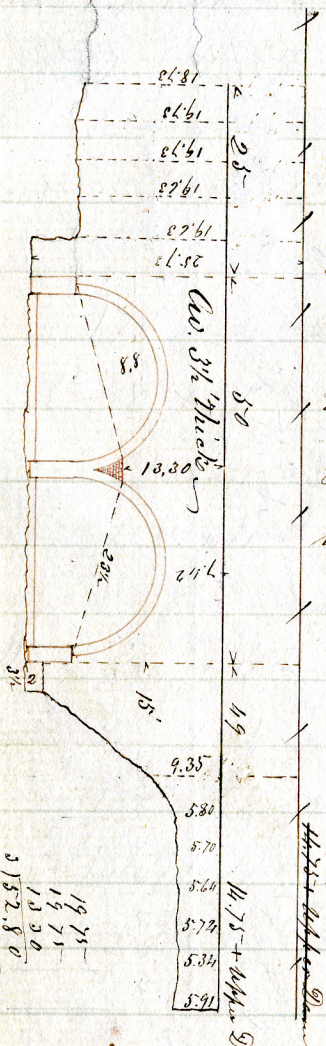 18.73
19.73
19.73
19.63
19.63
25.73
25
50
49
Av. 3½ Thick
8.8
13,30
23½
7.42
15
2
3½
9.35
5.80
5.70
5.64
5.72
5.34
5.91
14.75 + Upper D
14.75 + Upper Dam
19 75
19 75
13 30
3)52.80